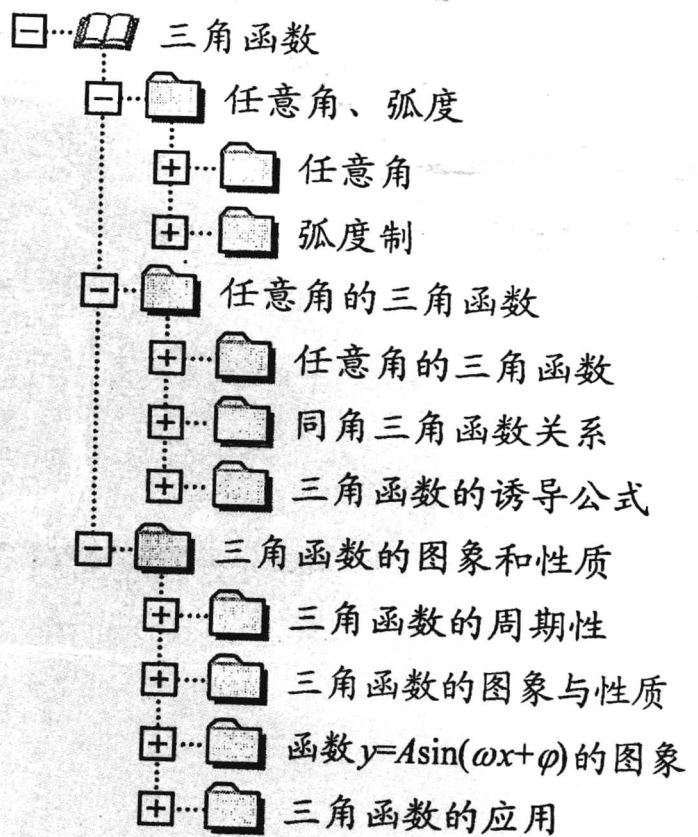 三角函数
任意角、弧度
任意角
弧度制
任意角的三角函数
任意角的三角函数
同角三角函数关系
三角函数的诱导公式
三角函数的图象和性质
三角函数的周期性
三角函数的图象与性质
函数y=Asin(ωx+φ)的图象
三角函数的应用